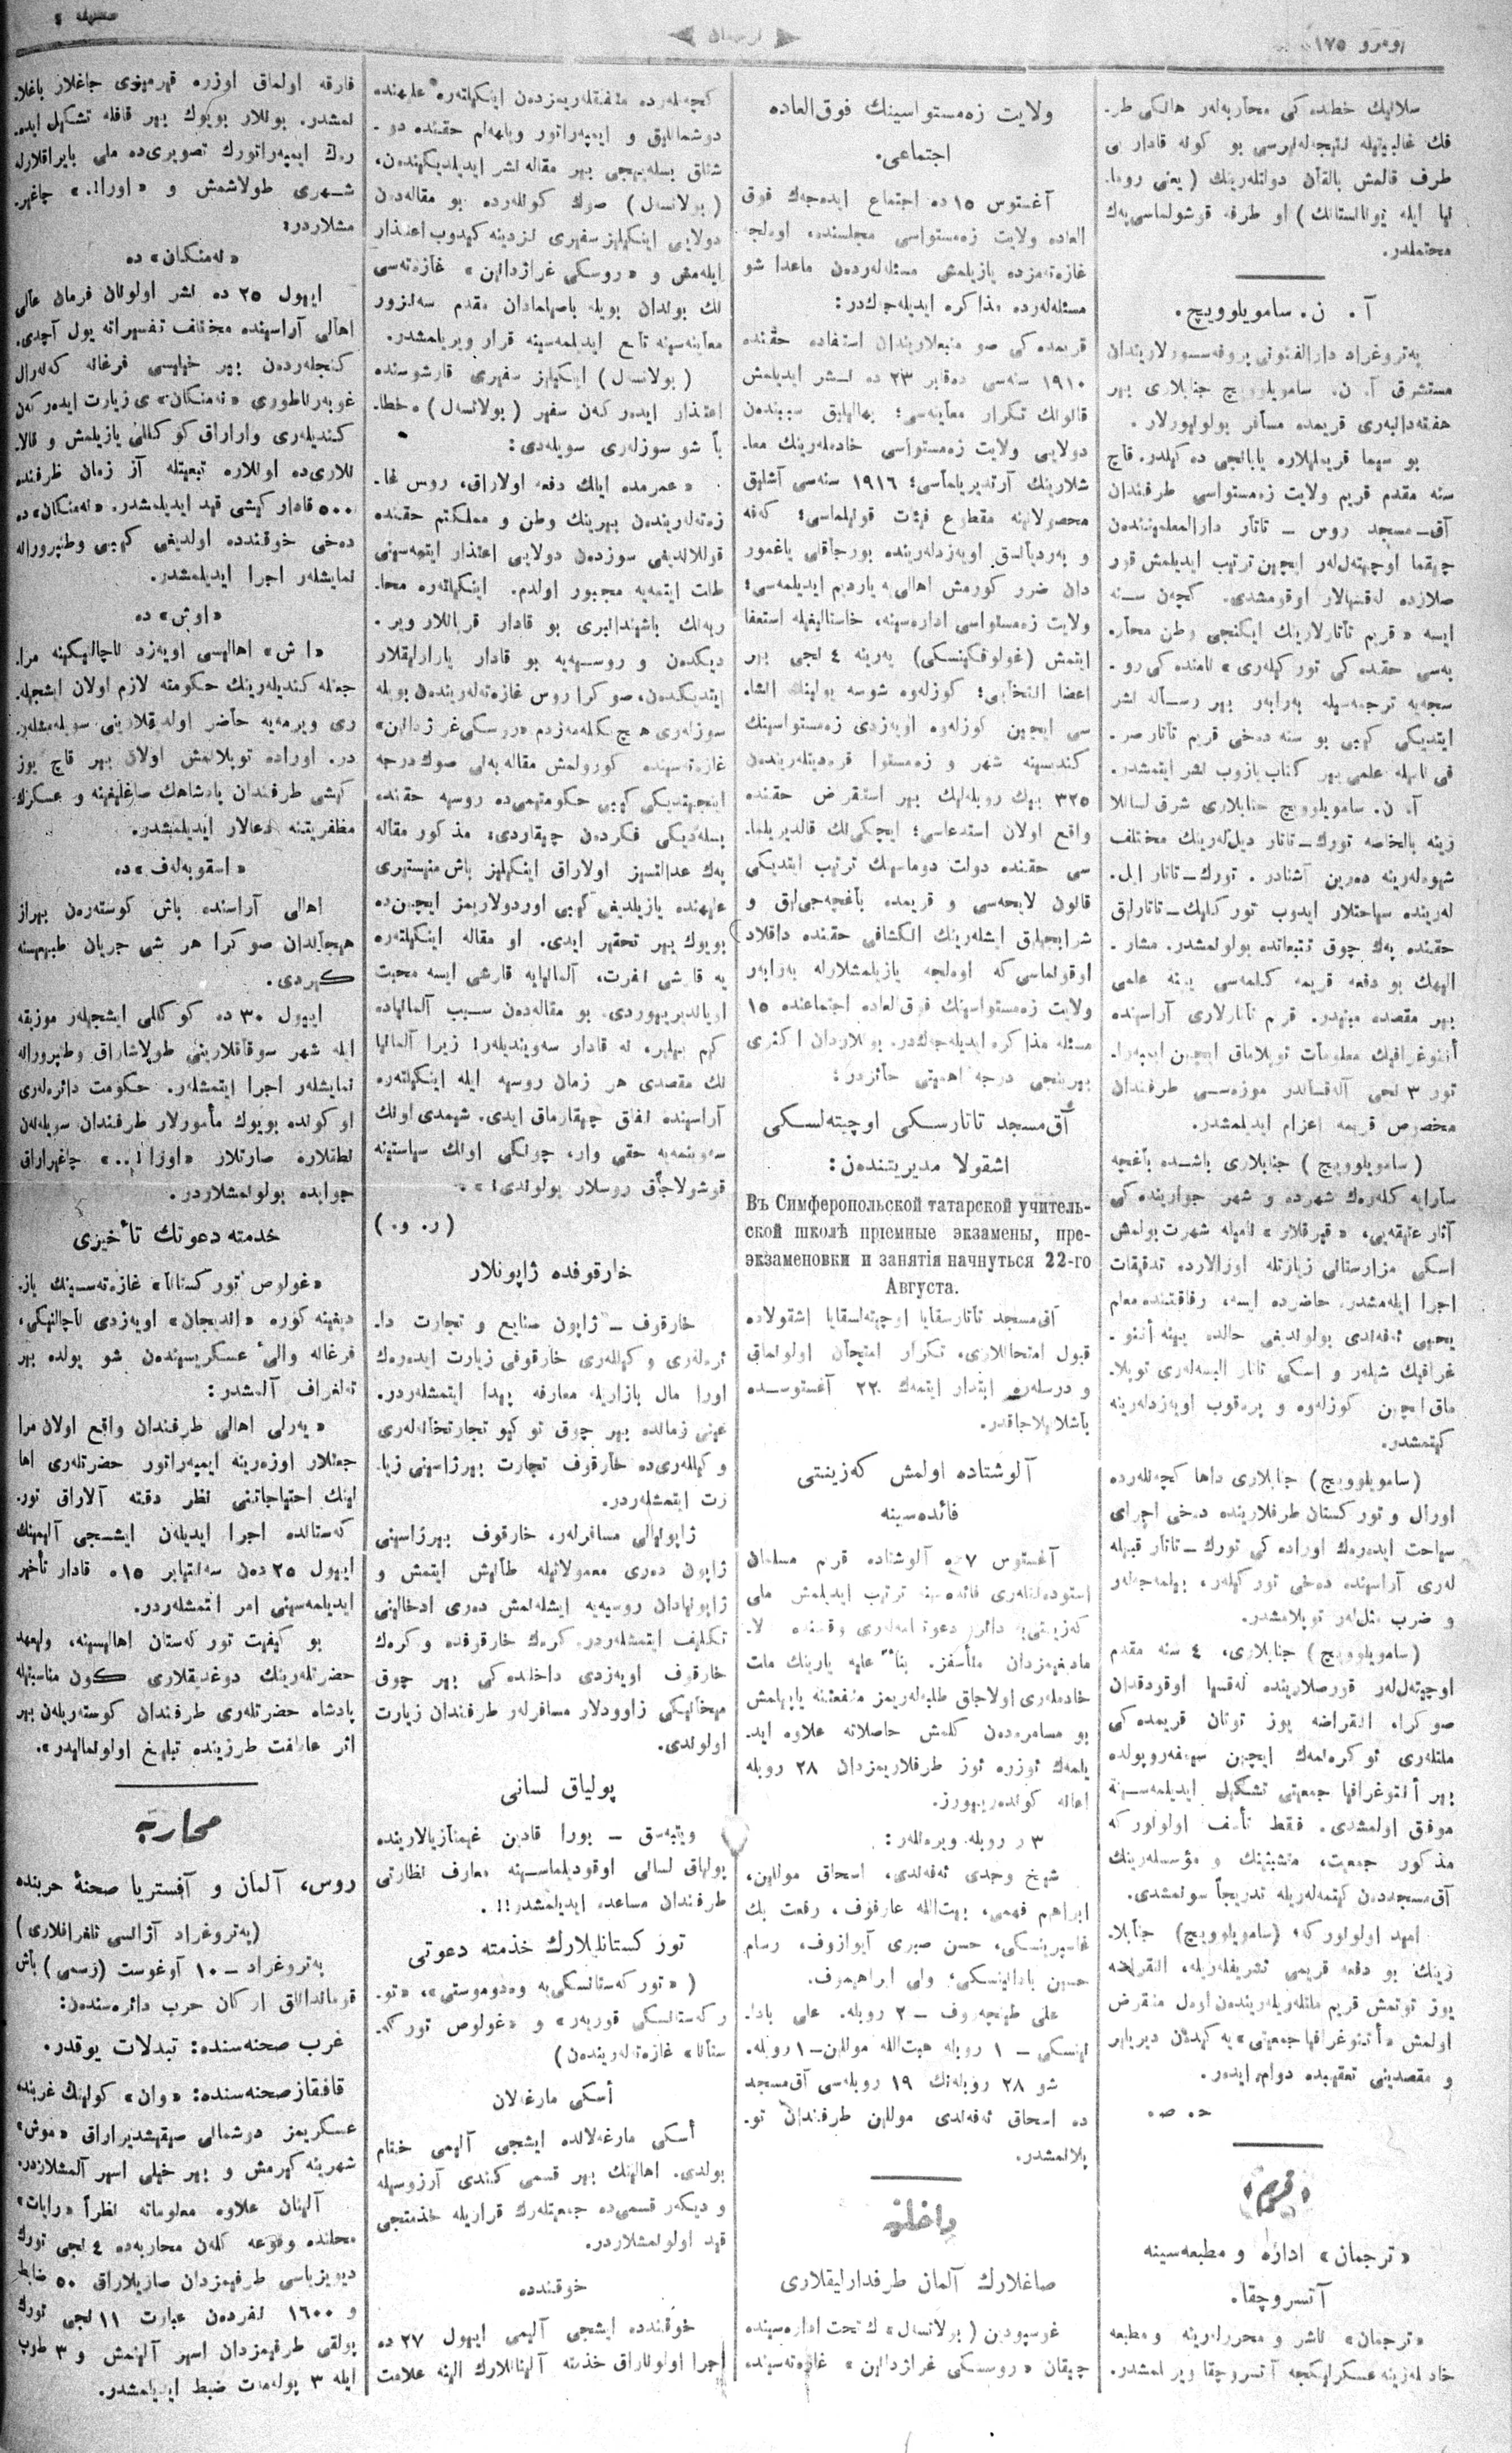 نومرو ١٧٥
ترجمان
صحيفه
سلانيك خطنده كى محاربه‌لر هانكى طر-
فك غالبيتيله نتيجه‌له‌نيرسى بو كونه قادار بى
طرف قالمش بالقان دولتله‌رينك (يعنى روما-
نيا ايله يونانستانك) او طرفه قوشولماسى پك
محتملدر.
آ. ن. سامويلوويچ.
په‌تروغراد دارالفنونى پروفه‌سسورلارندان
مستشرق آ. ن. سامويلوويچ جنابلارى بير
هفته‌دانبه‌رى قريمده مسافر بولونيورلار.
بو سيما قريمليلاره يابانجى ده كيلدر. قاچ
سنه مقدم قريم ولايت زه‌مستواسى طرفندان
آق-مسجد روس - تاتار دارالمعلميننده‌ن
چيقما اوچيته‌ل‌لر ايچين ترتيب ايديلمش قور
صلارده له‌قسيالار اوقومشدى. كچه‌ن سنه
ايسه «قريم تاتارلارينك ايكنجى وطن محار-
به‌سى حقنده كى توركيله‌رى» نامنده كى رو-
سجه‌يه ترجمه‌سيله به‌رابه‌ر بير رساله نشر
ايتديكى كيبى بو سنه ده‌خى قريم تاتار صر-
فى ناميله علمى بير كتاب يازوب نشر ايتمشدر.
آ. ن. سامويلوويچ جنابلارى شرق لسانلا
رينه بالخاصه تورك-تاتار ديل‌له‌رينك مختلف
شيوه‌له‌رينه ده‌رين آشنادر. تورك-تاتار ايل-
له‌رينده سياحتلار ايدوب توركليك-تاتارلق
حقنده پك چوق تتبعاتده بولونمشدر. مشار-
اليهك بو دفعه قريمه كلمه‌سى يينه علمى
بير مقصده مبنيدر. قريم تاتارلارى آراسنده
أتنوغرافيك معلومات توپلاماق ايچين ايمپه‌را-
تور ٣ نجى آله‌قساندر موزه‌سى طرفندان
مخصوص قريمه اعزام ايديلمشدر.
(سامويلوويچ) جنابلارى باشده باغچه
سارايه كله‌رك شهرده و شهر جوارينده كى
آثار عتيقه‌يى، «قيرقلار» ناميله شهرت بولمش
اسكى مزارستانى زيارتله اورالارده تدقيقات
اجرا ايله‌مشدر. حاضرده ايسه، رفاقتنده معلم
يحيى ئه‌فه‌ندى بولونديغى حالده يينه أتنو-
غرافيك شيله‌ر و اسكى تاتار البسه‌له‌رى توپلا-
ماق ايچين كوزله‌وه و پره‌قوب اويه‌زدله‌رينه
كيتمشدر.
(سامويلوويچ) جنابلارى داها كچه‌نله‌رده
اورال و توركستان طرفلارينده ده‌خى اجراى
سياحت ايده‌ره‌ك اوراده كى تورك-تاتار قبيله
له‌رى آراسنده ده‌خى توركيله‌ر، بيلمه‌جه‌له‌ر
و ضرب مثل‌له‌ر توپلامشدر.
(سامويلوويچ) جنابلارى، ٤ سنه مقدم
اوچيته‌ل‌له‌ر قورصلارينده له‌قسيا اوقودقدان
صوكرا، انقراضه يوز توتان قريمده كى
ملتله‌رى ئوكره‌نمه‌ك ايچين سيمفه‌روپولده
بير أتنوغرافيا جمعيتى تشكيل ايديلمه‌سينه
موفق اولمشدى. فقط تأسف اولونور كه
مذكور جمعيت، متشبثينك و مؤسسله‌رينك
آق‌مسجدده‌ن كيتمه‌له‌ريله تدريجاً سونمشدى.
اميد اولونور كه، (سامويلوويچ) جنابلا-
رينك بو دفعه قريمى تشريفله‌ريله، انقراضه
يوز توتمش قريم ملتله‌ريله‌رينده‌ن اول منقرض
اولمش «أتنوغرافيا جمعيتى» يه كيده‌ن ديريلير
و مقصدينى تعقيبده دوام ايده‌ر.
ح. ص.
قريم
«ترجمان» اداره و مطبعه‌سينه
آتسروچقا.
«ترجمان» ناشر و محررله‌رينه و مطبعه
خادمله‌رينه عسكرليكجه آتسروچقا ويرلمشدر.
ولايت زه‌مستواسينك فوق‌العاده
اجتماعى.
آغستوس ١٥ ده اجتماع ايده‌جه‌ك فوق
العاده ولايت زه‌مستواسى مجلسنده، اوه‌لجه
غازه‌ته‌مزده يازيلمش مسئله‌له‌رده‌ن ماعدا شو
مسئله‌له‌رده مذاكره ايديله‌جكدر:
قريمده كى صو منبعلاريندان استفاده حقنده
١٩١٠ سنه‌سى ده‌قابر ٢٣ ده نشر ايديلمش
قانونك تكرار معاينه‌سى؛ بهاليق سببندن
دولايى ولايت زه‌مستواسى خادمله‌رينك معا-
شلارينك آرتديريلماسى؛ ١٩١٦ سنه‌سى آشليق
محصولاتينه مقطوع فيئات قويلماسى؛ كه‌فه
و به‌رديانسق اويه‌زدله‌رينده بورچاقلى ياغمور
دان ضرر كورمش اهالى‌يه يارديم ايديلمه‌سى؛
ولايت زه‌مستواسى اداره‌سينه، خاستاليغيله استعفا
ايتمش (غولوفكينسكى) يه‌رينه ٤ نجى بير
اعضا انتخابى؛ كوزله‌وه شوسه يولينك انشا-
سى ايچين كوزله‌وه اويه‌زدى زه‌مستواسينك
كندسينه شهر و زه‌مستوا قره‌ديتله‌رينده‌ن
٣٢٥ بيك روبله‌ليك بير استقراض حقنده
واقع اولان استدعاسى؛ ايچكى‌نك قالديريلما-
سى حقنده دولت دوماسينك ترتيب ايتديكى
قانون لايحه‌سى و قريمده باغچه‌جيلق و
شرابجيلق ايشله‌رينك انكشافى حقنده داقلاد
اوقونماسى كه اوه‌لجه يازيلمشلارله به‌رابه‌ر
ولايت زه‌مستواسينك فوق‌العاده اجتماعنده ١٥
مسئله مذاكره ايديله‌جكدر. بونلاردان اكثرى
بيرينجى درجه اهميتى حائزدر؛
آق‌مسجد تاتارسكى اوچيته‌لسكى
اشقولا مديريتندن:
Въ Симферопольской татарской учитель-
ской школѣ пріемные экзамены, пре-
экзаменовки и занятія начнуться 22-го
Августа.
آق‌مسجد تاتارسقايا اوچيته‌لسقايا اشقولاده
قبول امتحانلارى، تكرار امتحان اولونماق
و درسله‌ره ابتدار ايتمه‌ك ٢٢ آغستوسده
باشلانيلاجاقدر.
آلوشتاده اولمش كه‌زينتى
فائده‌سينه
آغستوس ٧ ده آلوشتاده قريم مسلمان
استوده‌نتله‌رى فائده‌سينه ترتيب ايديلمش ملى
كه‌زينتى‌يه دائر دعوتنامه‌له‌رى وقتنده آلا-
مادغيمزدان متأسفز. بناءً عليه يارينك ملت
خادمله‌رى اولاجاق طلبه‌له‌ريمز منفعتنه يابيلمش
بو مسامره‌ده‌ن كلمش حاصلاته علاوه ايد-
يلمه‌ك ئوزره ئوز طرفلاريمزدان ٢٨ روبله
اعانه كونده‌ريورز.
٣ ر روبله ويره‌نله‌ر:
شيخ وجدى ئه‌فه‌ندى، اسحاق موللين،
ابراهيم فهمى، بيت‌الله عارفوف، رفعت بك
غاسپرينسكى، حسن صبرى آيوازوف، رسام
حسين بادانينسكى؛ ولى ابراهيموف.
على طينچه‌روف - ٢ روبله. على بادا-
نينسكى - ١ روبله هبت‌الله موللين - ١ روبله.
شو ٢٨ روبله‌نك ١٩ روبله‌سى آق‌مسجد
ده اسحاق ئه‌فه‌ندى موللين طرفندان تو-
پلانمشدر.
داخليه
صاغلارك آلمان طرفدارليقلارى
غوسپودين (بولانسل) ك تحت اداره‌سينده
چيقان «روسسكى غراژدانين» غازه‌ته‌سينده
كچه‌نله‌رده متفقله‌ريمزدن اينكيلته‌ره عليهنده
دوشمانليق و ايمپه‌راتور ويلهه‌لم حقنده دو-
ستلق بسله‌ييجى بير مقاله نشر ايديلديكيندن،
(بولانسل) صوك كونله‌رده بو مقاله‌دن
دولايى اينكيليز سفيرى نزدينه كيدوب اعتذار
ايله‌مش و «روسكى غراژدانين» غازه‌ته‌سى
نك بوندان بويله باصيلمادان مقدم سه‌نزور
معاينه‌سينه تابع ايديلمه‌سينه قرار ويريلمشدر.
(بولانسل) اينكيليز سفيرى قارشوسنده
اعتذار ايدركه‌ن سفير (بولانسل)ه خطا-
باً شو سوزله‌رى سويله‌دى:
«عمرمده ايلك دفعه اولاراق، روس غا-
زه‌ته‌له‌رينده‌ن بيرينك وطن و مملكتم حقنده
قوللانديغى سوزده‌ن دولايى اعتذار ايتمه‌سينى
طلب ايتمه‌يه مجبور اولدم. اينكيلته‌ره محا-
ربه‌نك باشيندانبرى بو قادار قربانلار وير-
ديكده‌ن و روسيه‌يه بو قادار يارارليقلار
ايتديكده‌ن، صوكرا روس غازه‌ته‌له‌رينده‌ن بويله
سوزله‌رى هيچ بكله‌مه‌زدم «روسكى غراژدانين»
غازه‌ته‌سينده كورولمش مقاله به‌نى صوك درجه
اينجيتديكى كيبى حكومتيمى‌ده روسيه حقنده
بسله‌ديكى فكرده‌ن چيقاردى؛ مذكور مقاله
پك عدالتسيز اولاراق اينكيليز باش منيسترى
عليهنده يازيلديغى كيبى اوردولاريمز ايچين‌ده
بويوك بير تحقير ايدى. او مقاله اينكيلته‌ره
يه قارشى نفرت، آلمانيايه قارشى ايسه محبت
اويانديريوردى. بو مقاله‌ده‌ن سبب آلمانياده
كيم بيلير، نه قادار سه‌وينديله‌ر! زيرا آلمانيا
نك مقصدى هر زمان روسيه ايله اينكيلته‌ره
آراسينده نفاق چيقارماق ايدى. شيمدى اونك
سه‌وينمه‌يه حقى وار، چونكى اونك سياستينه
قوشولاجاق روسلار بولوندى!».
(ر. و.)
خارقوفده ژاپونلار
خارقوف - ژاپون صنايع و تجارت دا-
ئره‌له‌رى وكيلله‌رى خارقوفى زيارت ايده‌ره‌ك
اورا مال بازاريله معارفه پيدا ايتمشله‌ردر.
عينى زمانده بير چوق توكيو تجارتخانه‌له‌رى
وكيلله‌رى‌ده خارقوف تجارت بيرژاسينى زيا-
رت ايتمشله‌ردر.
ژاپونيالى مسافرله‌ر، خارقوف بيرژاسينى
ژاپون ده‌رى معمولاتيله طانيش ايتمش و
ژاپونيادان روسيه‌يه ايشله‌نمش ده‌رى ادخالينى
تكليف ايتمشله‌ردر. كره‌ك خارقوفده و كره‌ك
خارقوف اويه‌زدى داخلنده كى بير چوق
ميخانيكى زاوودلار مسافرله‌ر طرفندان زيارت
اولوندى.
پولياق لسانى
ويتبسق - بورا قادين غيمنازيالارينده
پولياق لسانى اوقوديلماسينه معارف نظارتى
طرفندان مساعده ايديلمشدر!!.
توركستانليلارك خذمته دعوتى
(«توركه‌ستانسكى‌يه وه‌دوموستى»، «تو-
ركه‌ستانسكى قوريه‌ر» و «غولوص توركه-
ستانا» غازه‌ته‌له‌رينده‌ن)
أسكى مارغه‌لان
أسكى مارغه‌لانده ايشجى آليمى ختام
بولدى. اهالينك بير قسمى كندى آرزوسيله
و ديكه‌ر قسمى‌ده جمعيتله‌رك قراريله خذمتجى
قيد اولونمشلاردر.
خوقندده
خوقندده ايشجى آليمى ايپول ٢٧ ده
اجرا اولوناراق خذمته آلينانلارك الينه علامت
فارقه اولماق اوزره قيرميزى چاغلار باغلا-
نمشدر. بونلار بويوك بير قافله تشكيل ايده-
ره‌ك ايمپه‌راتورك تصويرى‌ده ملى بايراقلارله
شهرى طولاشمش و «اورا!.» چاغير-
مشلاردر؛
«نه‌منكان» ده
ايپول ٢٥ ده نشر اولونان فرمان عالى
اهالى آراسينده مختلف تفسيراته يول آچدى.
كنجله‌رده‌ن بير خيليسى فرغانه كه‌نه‌رال
غوبه‌رناطورى «نه‌منكان» ى زيارت ايده‌ركه‌ن
كنديله‌رى واراراق كوكللى يازيلمش و قالا-
نلارى‌ده اونلاره تبعيتله آز زمان ظرفنده
٥٠٠ قادار كيشى قيد ايديلمشدر. «نه‌منكان» ده
ده‌خى خوقندده اولديغى كيبى وطنپرورانه
نمايشله‌ر اجرا ايديلمشدر.
«اوش» ده
«اش» اهاليسى اويه‌زد ناچالنيكينه مرا-
جعتله كنديله‌رينك حكومته لازم اولان ايشجيله-
رى ويرمه‌يه حاضر اولدقلارينى سويله‌مشله‌ر
در. اوراده توپلانمش اولان بير قاچ يوز
كيشى طرفندان پادشاهك صاغليغينه و عسكرك
مظفريتنه دعالار ايديلمشدر.
«اسقوبه‌له‌ف» ده
اهالى آراسنده باش كوسته‌ره‌ن بيراز
هيجاندان صوكرا هر شى جريان طبيعيسنه
كيردى.
ايپول ٣٠ ده كوكللى ايشجيله‌ر موزيقه
ايله شهر سوقاقلارينى طولاشاراق وطنپرورانه
نمايشله‌ر اجرا ايتمشله‌ر. حكومت دائره‌له‌رى
اوكونده بويوك مأمورلار طرفندان سويله‌نه‌ن
نطقلاره صارتلار «اورا!..» چاغيراراق
جوابده بولونمشلاردر.
خدمته دعوتك تأخيرى
«غولوص توركستانا» غازه‌ته‌سينك ياز-
ديغينه كوره «انديجان» اويه‌زدى ناچالنيكى،
فرغانه والىٴ عسكريسينده‌ن شو يولده بير
ته‌لغراف آلمشدر:
«يه‌رلى اهالى طرفندان واقع اولان مرا
جعتلار اوزه‌رينه ايمپه‌راتور حضرتله‌رى اها
لينك احتياجاتنى نظر دقته آلاراق تور-
كه‌ستانده اجرا ايديله‌ن ايشجى آليمينك
ايپول ٢٥ ده‌ن سه‌نتيابر ١٥ ه قادار تأخير
ايديلمه‌سينى امر ايتمشله‌ردر.
بو كيفيت توركه‌ستان اهاليسينه، وليعهد
حضرتله‌رينك دوغديقلارى كون مناسبتيله
پادشاه حضرتله‌رى طرفندان كوسته‌ريله‌ن بير
اثر عاطفت طرزينده تبليغ اولونماليدر».
محاربه
روس، آلمان و آفستريا صحنهٔ حربنده
(په‌تروغراد آژانسى تلغرافلارى)
په‌تروغراد - ١٠ آوغوست (رسمى) باش
قوماندانلق اركان حرب دائره‌سنده‌ن:
غرب صحنه‌سنده: تبدلات يوقدر.
قافقاز صحنه‌سنده: «وان» كولينك غربنده
عسكريمز دوشمانى صيقيشديراراق «موش»
شهرينه كيرمش و بير خيلى اسير آلمشلاردر.
آلينان علاوه معلوماته نظراً «رايات»
محلنده وقوعه كلن محاربه‌ده ٤ نجى تورك
ديويزياسى طرفيمزدان صاريلاراق ٥٠ ضابط
و ١٦٠٠ نفرده‌ن عبارت ١١ نجى تورك
پولقى طرفيمزدان اسير آلينمش و ٣ طوپ
ايله ٣ پوله‌مات ضبط ايديلمشدر.